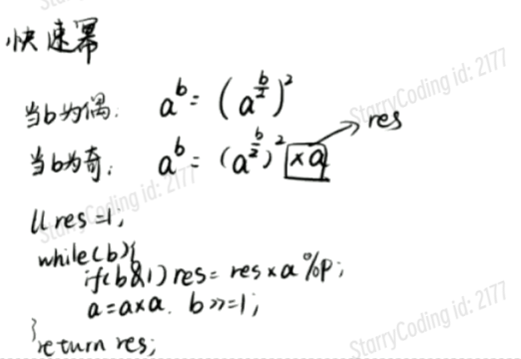 快速幂
StarryCoding id: 2177
当b为偶: a^b = (a^{b/2})^2
当b为奇: a^b = (a^{b/2})^2 ×a → res
StarryCoding id: 2177
ll res=1;
while(b){
if(b&1) res= res×a%p;
a=a×a. b>>=1;
}
return res;
StarryCoding id: 2177